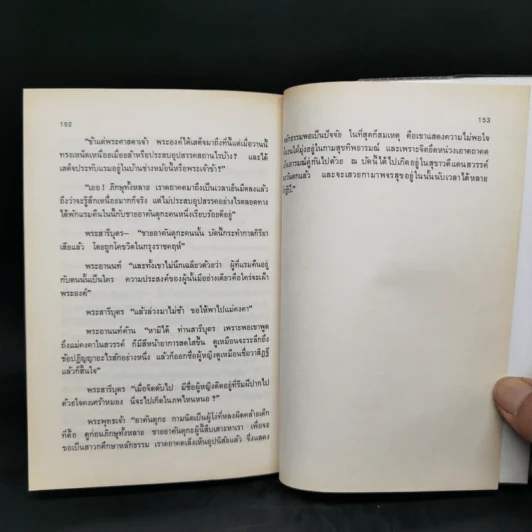 152
"ข้าแต่พระศาสดาเจ้า พระองค์ได้เสด็จมาถึงที่นี้แต่เมื่อวานนี้
ทรงเหน็ดเหนื่อยเมื่อยล้าหรือประสบอุปสรรคสถานไรบ้าง? และได้
เสด็จประทับแรมอยู่ในบ้านช่างหม้อนี้หรือพระเจ้าข้า?"
"เออ! ภิกษุทั้งหลาย เราตถาคตมาถึงเป็นเวลาเย็นมืดลงแล้ว
ถึงว่าจะรู้สึกเหนื่อยมากก็จริง แต่ไม่ประสบอุปสรรคอย่างไรตลอดทาง
ได้พักแรมคืนในนี้กับชายอาคันตุกะคนหนึ่งเรียบร้อยดีอยู่"
พระสารีบุตร— "ชายอาคันตุกะคนนั้น บัดนี้กระทำกาลกิริยา
เสียแล้ว โดยถูกโคขวิดในกรุงราชคฤห์"
พระอานนท์ "และทั้งเขาไม่นึกเฉลียวด้วยว่า ผู้ที่แรมคืนอยู่
กับตนนั้นเป็นใคร ความประสงค์ของผู้นั้นมีอย่างเดียวคือใคร่จะเฝ้า
พระองค์"
พระสารีบุตร "แล้วล่วงมาไม่ช้า ขอให้พาไปแม่คงคา"
พระอานนท์ค้าน "หามิได้ ท่านสารีบุตร เพราะพอเขาพูด
ถึงแม่คงคาในสวรรค์ ก็มีสีหน้าอาการสดใสขึ้น ดูเหมือนจะระลึกถึง
ข้อปฏิญญาอะไรสักอย่างหนึ่ง แล้วก็ออกชื่อผู้หญิงดูเหมือนชื่อวาสิฏฐี
แล้วก็สิ้นใจ"
พระสารีบุตร "เมื่อจิตดับไป มีชื่อผู้หญิงติดอยู่ที่ริมฝีปากไป
ด้วยใจคงเศร้าหมอง นี่จะไปเกิดในภพไหนหนอ?"
พระพุทธเจ้า "อาคันตุกะ กามนิตเป็นผู้โง่ที่หลงผิดคล้ายเด็ก
ที่ดื้อ ดูก่อนภิกษุทั้งหลาย ชายอาคันตุกะผู้นี้สืบเสาะหาเรา เพื่อจะ
ขอเป็นสาวกศึกษาหลักธรรม เราตถาคตเล็งเห็นอุปนิสัยแล้ว จึงแสดง
153
หลักธรรมพอเป็นปัจจัย ในที่สุดก็สมเหตุ คือเขาแสดงความไม่พอใจ
มุ่งอยู่ในกามสุขทิพอารมณ์ และเพราะจิตยึดหน่วงเอาตถาคต
เป็นอารมณ์คู่กันไปด้วย ณ บัดนี้ได้ไปเกิดอยู่ในสุขาวดีแดนสวรรค์
ตกแล้ว และจะเสวยกามาพจรสุขอยู่ในนั้นนับเวลาได้หลาย